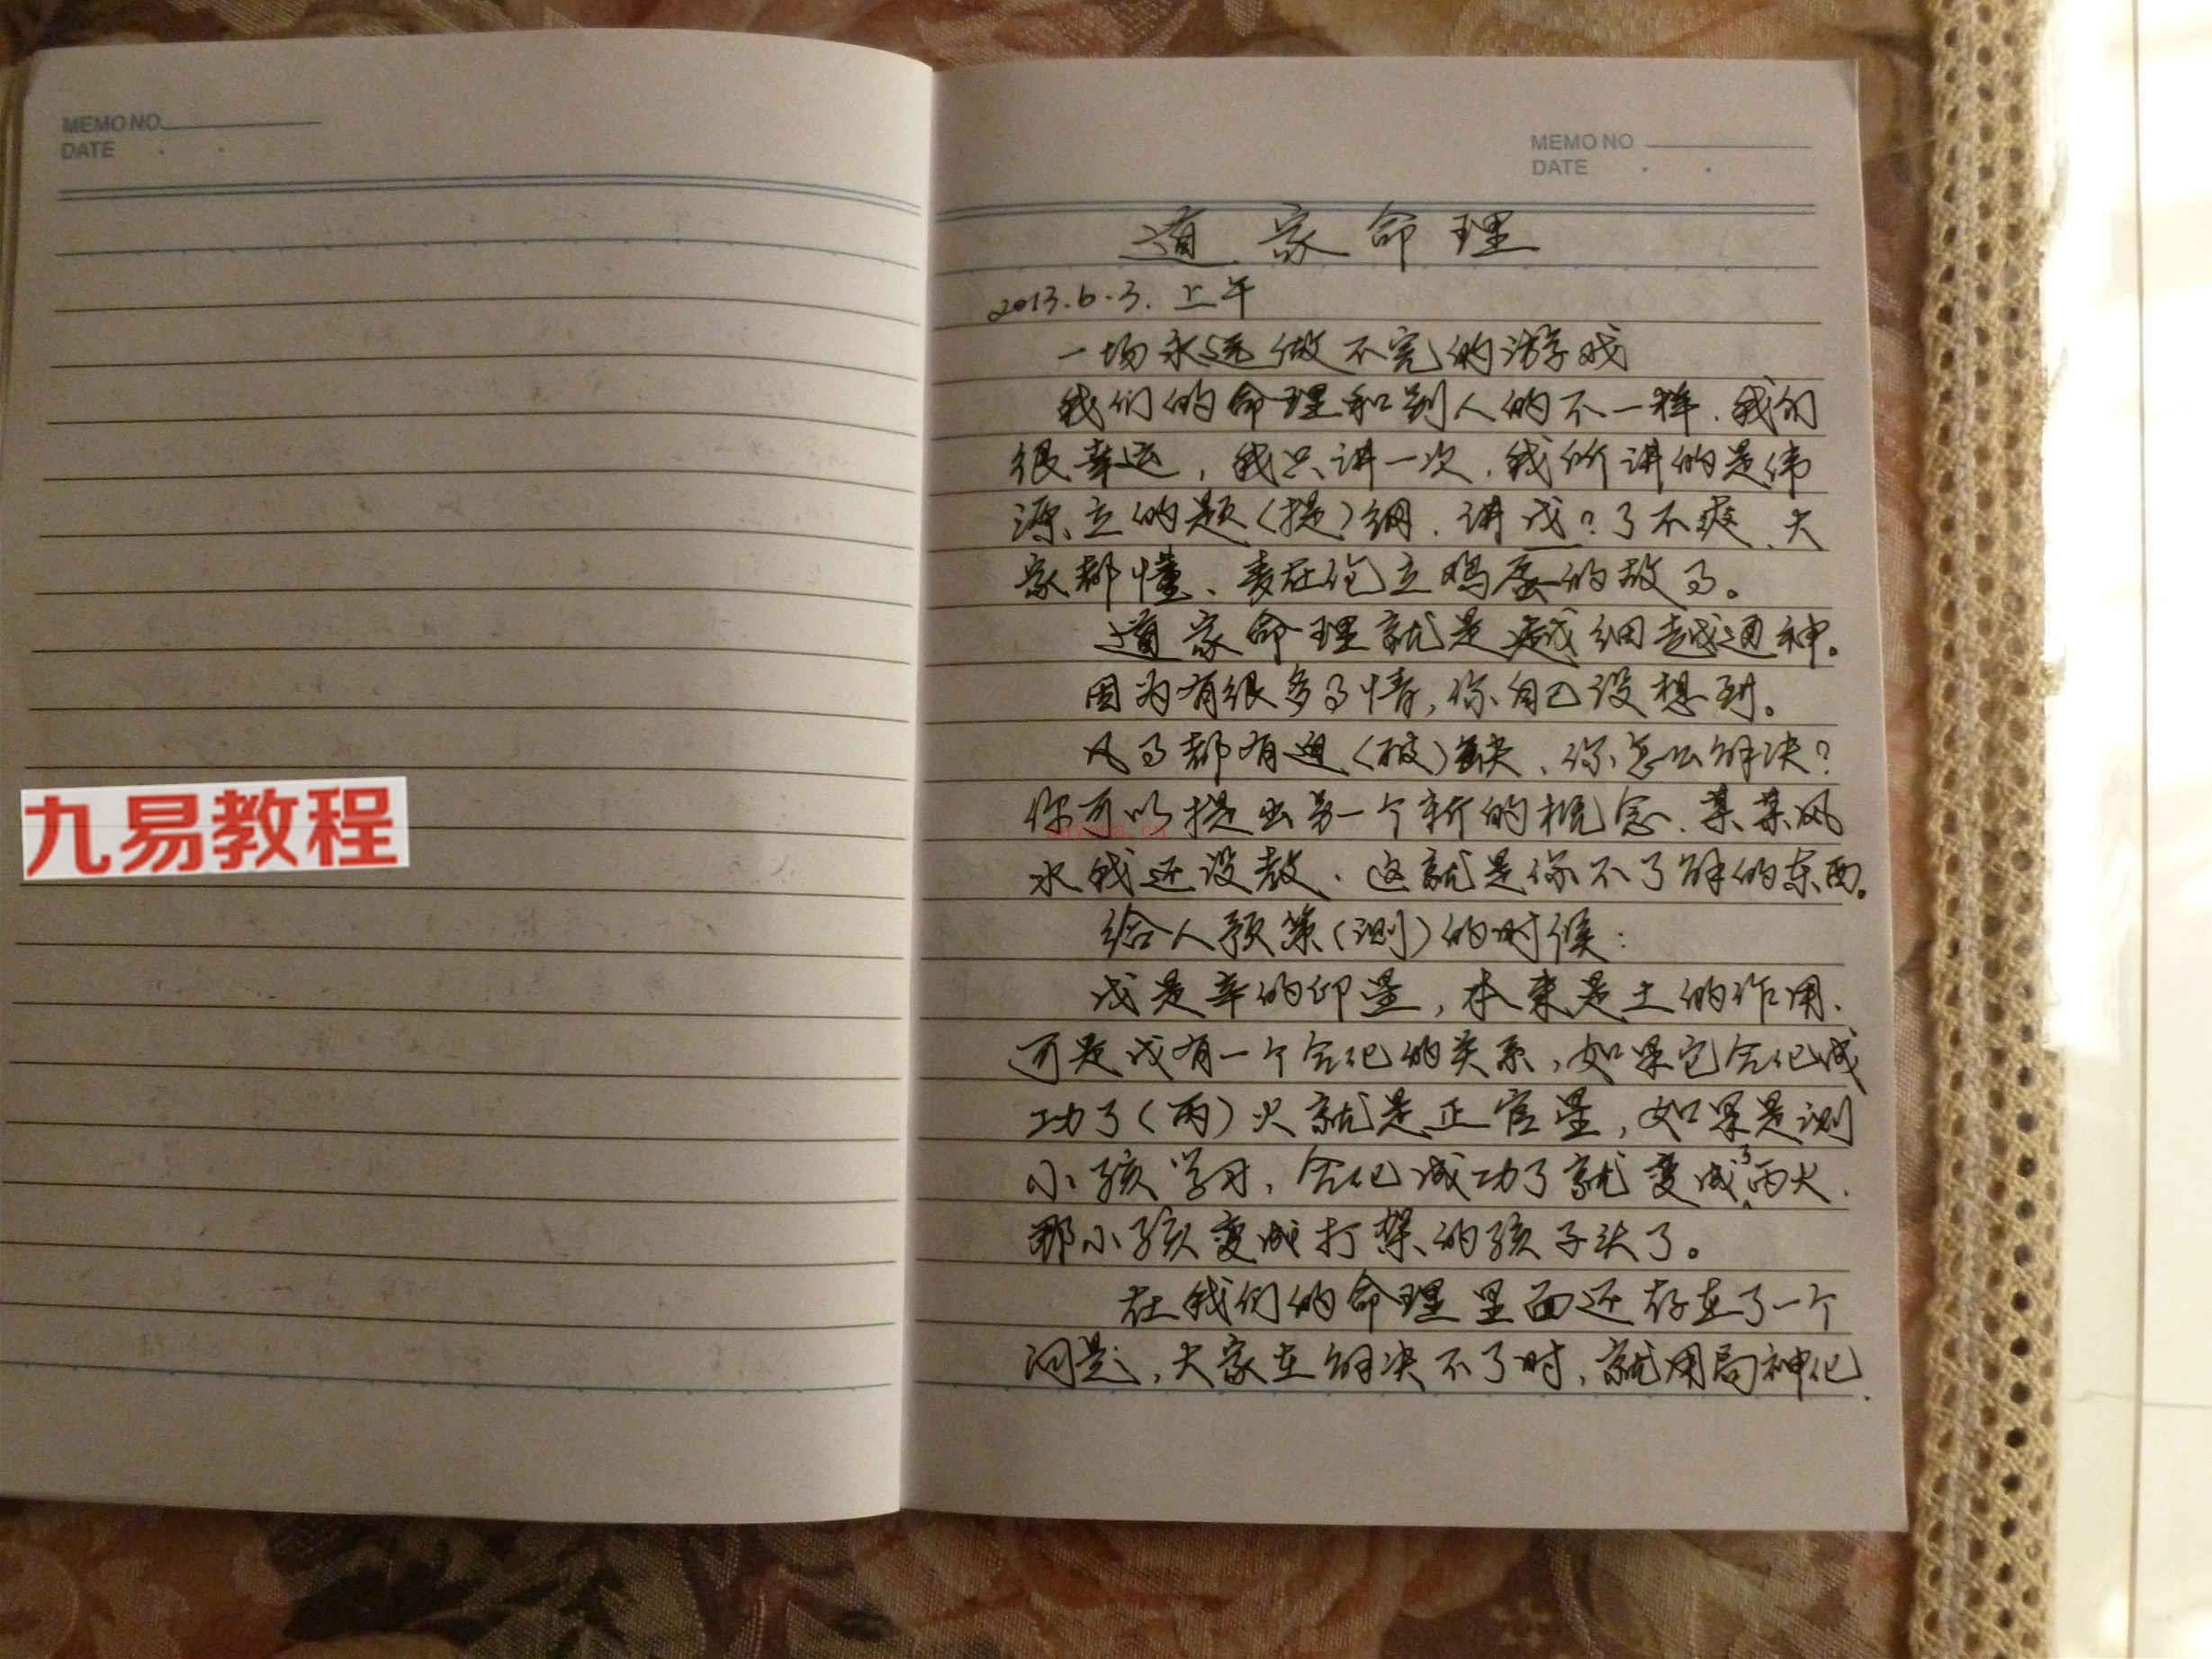 MEMO NO
DATE
九易教程
MEMO NO
DATE
道家命理
2013.6.3. 上午
一场永远做不完的游戏
我们的命理和别人的不一样.我们
很幸运,我只讲一次.我所讲的是伟
源立的题(提)纲.讲戊?了不疲、大
家都懂、
的故事。
道家命理就是越细越通神。
因为有很多事情,你自己没想到。
凡事都有迫(破)缺、你怎么解决?
你可以提出另一个新的概念.某某风
水我还没教.这就是你不了解的东西。
给人预策(测)的时候:
戊是辛的印星,本来是土的作用、
可是戊有一个合化的关系,如果它合化成
功了(丙)火就是正官星,如果是测
小孩学习、合化成功了就变成了丙火.
那小孩变成打架的孩子头了。
在我们的命理里面还存在了一个
问题,大家在解决不了时、就用局神化.